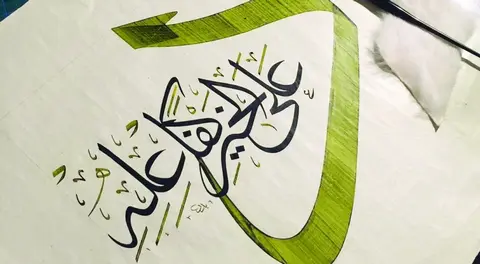 على الخير كفاعله